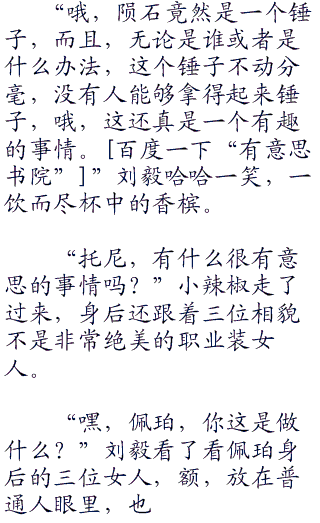 “哦，陨石竟然是一个锤
子，而且，无论是谁或者是
什么办法，这个锤子不动分
毫，没有人能够拿得起来锤
子，哦，这还真是一个有趣
的事情。[百度一下“有意思
书院”]”刘毅哈哈一笑，一
饮而尽杯中的香槟。
“托尼，有什么很有意
思的事情吗？”小辣椒走了
过来，身后还跟着三位相貌
不是非常绝美的职业装女
人。
“嘿，佩珀，你这是做
什么？”刘毅看了看佩珀身
后的三位女人，额，放在普
通人眼里，也